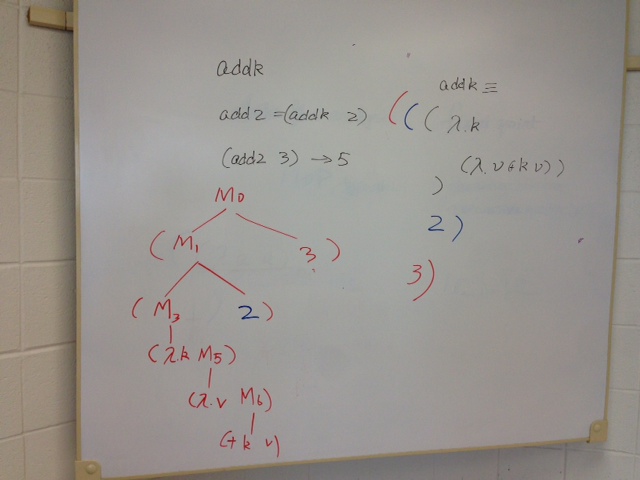 addk
add2 = (addk 2)
(add2 3) → 5
M0
(M1 3)
(M3 2)
(λ.k M5)
(λ.v M6)
(+ k v)
addk ≡
( ( ( λ.k
(λ.v (+ k v))
)
2)
3)